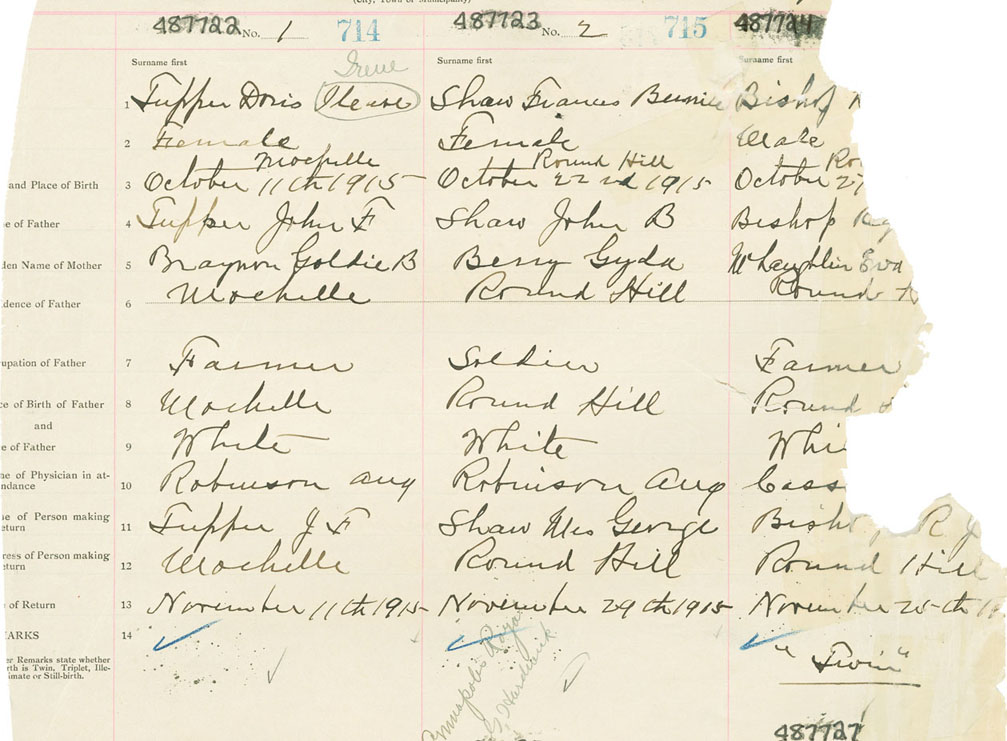 (City, Town or Municipality)
487722 No. 1 714 487723 No. 2 715 487724
Surname first Irene Surname first Surname first
1 Tupper Doris Shaw Frances Bishop
2 Female Female Male
Mochelle Round Hill Ro
and Place of Birth 3 October 11th 1915 October 22nd 1915 October 27
e of Father 4 Tupper John F Shaw John B Bishop
den Name of Mother 5 Goldie B Berry Gyda McLaughlin Eva
dence of Father 6 Mochelle Round Hill Round
upation of Father 7 Farmer Soldier Farmer
ce of Birth of Father 8 Mochelle Round Hill Round
and
e of Father 9 White White Whi
ne of Physician in at-
ndance 10 Robinson Aug Robinson Aug
se of Person making
eturn 11 Tupper J F Shaw Mrs George Bisho R J
ress of Person making
eturn 12 Mochelle Round Hill Round Hill
of Return 13 November 11th 1915 November 29th 1915 November 25th 19
MARKS 14
er Remarks state whether
rth is Twin, Triplet, Ille-
imate or Still-birth.
"Twin"
Annapolis Royal
G Hardwick
487727